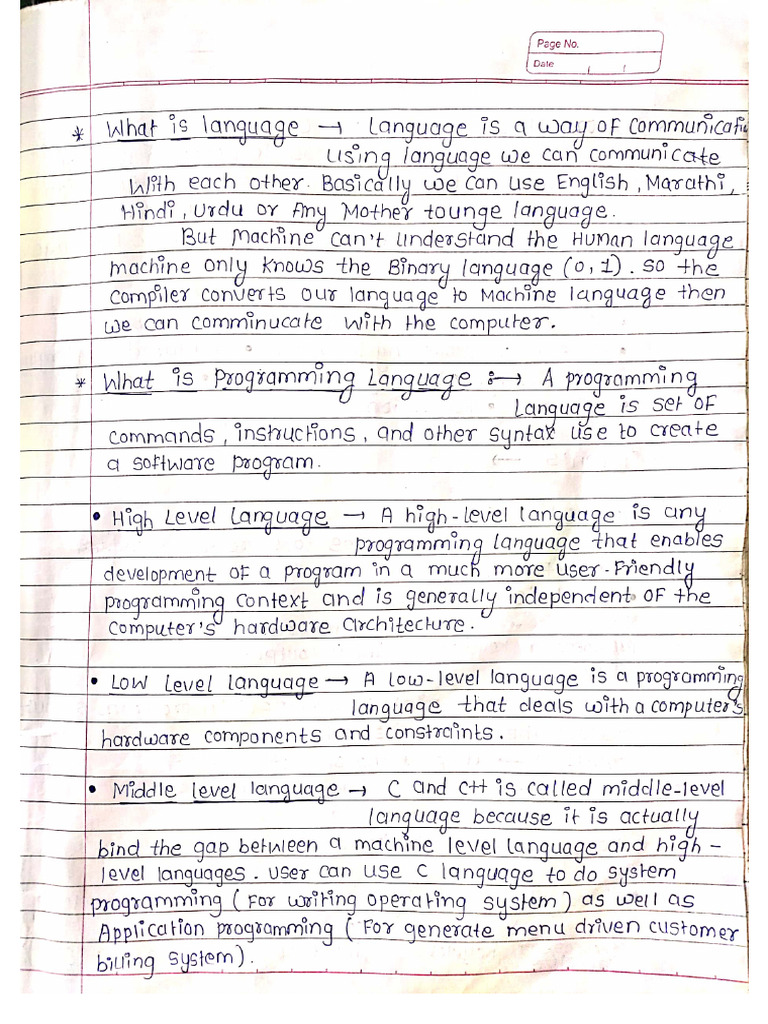 Page No.
Date
* What is language → Language is a way of communicatio
Using language we can communicate
With each other. Basically we can use English, Marathi,
Hindi, Urdu or Any Mother tounge language.
But Machine can't understand the Human language
machine only knows the Binary language (0,1). so the
compiler converts our language to Machine language then
we can comminucate with the computer.
* What is Programming Language :→ A programming
Language is set of
commands, instructions, and other syntax use to create
a software program.
• High Level Language → A high-level language is any
programming language that enables
development of a program in a much more user-friendly
programming context and is generally independent of the
computer's hardware architecture.
• Low Level language → A low-level language is a programming
language that deals with a computer's
hardware components and constraints.
• Middle level language → C and C++ is called middle-level
language because it is actually
bind the gap between a machine level language and high-
level languages. User can use C language to do system
programming (For writing operating system) as well as
Application programming (For generate menu driven customer
billing system).